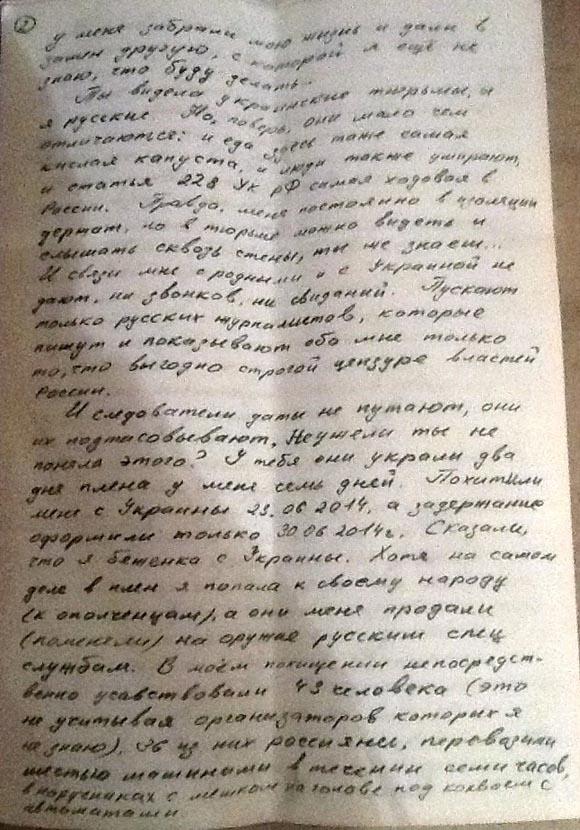 2
у меня забрали мою жизнь и дали в
замен другую, с которой я ещё не
знаю, что буду делать...
Ты видела украинские тюрьмы, а
я русские. Но, поверь, они мало чем
отличаються: и еда здесь таже самая
кислая капуста, и люди также умирают,
и статья 228 УК РФ самая ходовая в
России. Правда, меня постоянно в изоляции
держат, но в тюрьме можно видеть и
слышать сквозь стены, ты же знаеш...
И связи мне с родными и с Украиной не
дают, ни звонков, ни свиданий. Пускают
только русских журналистов, которые
пишут и показывают обо мне только
то, что выгодно строгой цензуре властей
России.
И следователи даты не путают, они
их подтасовывают, Неужели ты не
поняла этого? У тебя они украли два
дня плена у меня семь дней. Похитили
меня с Украины 23.06 2014, а задержание
оформили только 30 06 2014г. Сказали,
что я беженка с Украины. Хотя на самом
деле в плен я попала к своему народу
(к ополченцам), а они меня продали
(поменяли) на оружие русским спец
службам. В моём похищении непосредст-
венно учавствовали 43 человека (это
не учитывая организаторов которых я
не знаю), 36 из них россияне, перевозили
шестью машинами в течении семи часов,
в наручниках с мешком на голове под конвоем с
автоматами.